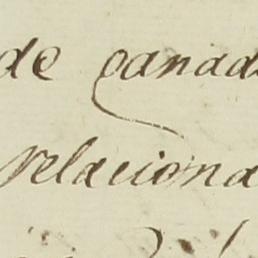 de ganad
relaciona